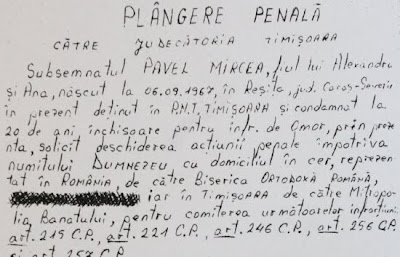 PLÂNGERE PENALĂ
CĂTRE JUDECĂTORIA TIMIȘOARA
Subsemnatul PAVEL MIRCEA, fiul lui Alexandru
și Ana, născut la 06.09.1967, în Reșița, jud. Caraș-Severin
în prezent deținut în P.N.T. TIMIȘOARA și condamnat la
20 de ani, închisoare pentru infr. de Omor, prin preze
nta, solicit deschiderea acțiunii penale împotriva
numitului DUMNEZEU cu domiciliul în cer, reprezen
tat în ROMÂNIA de către Biserica ORTODOXĂ ROMÂNĂ,
iar în TIMIȘOARA de către Mitropo
lia Banatului, pentru comiterea următoarelor infracțiuni:
art. 215 C.P., art. 221 C.P., art. 246 C.P., art. 256 C.P.
și art. 257 C.P.